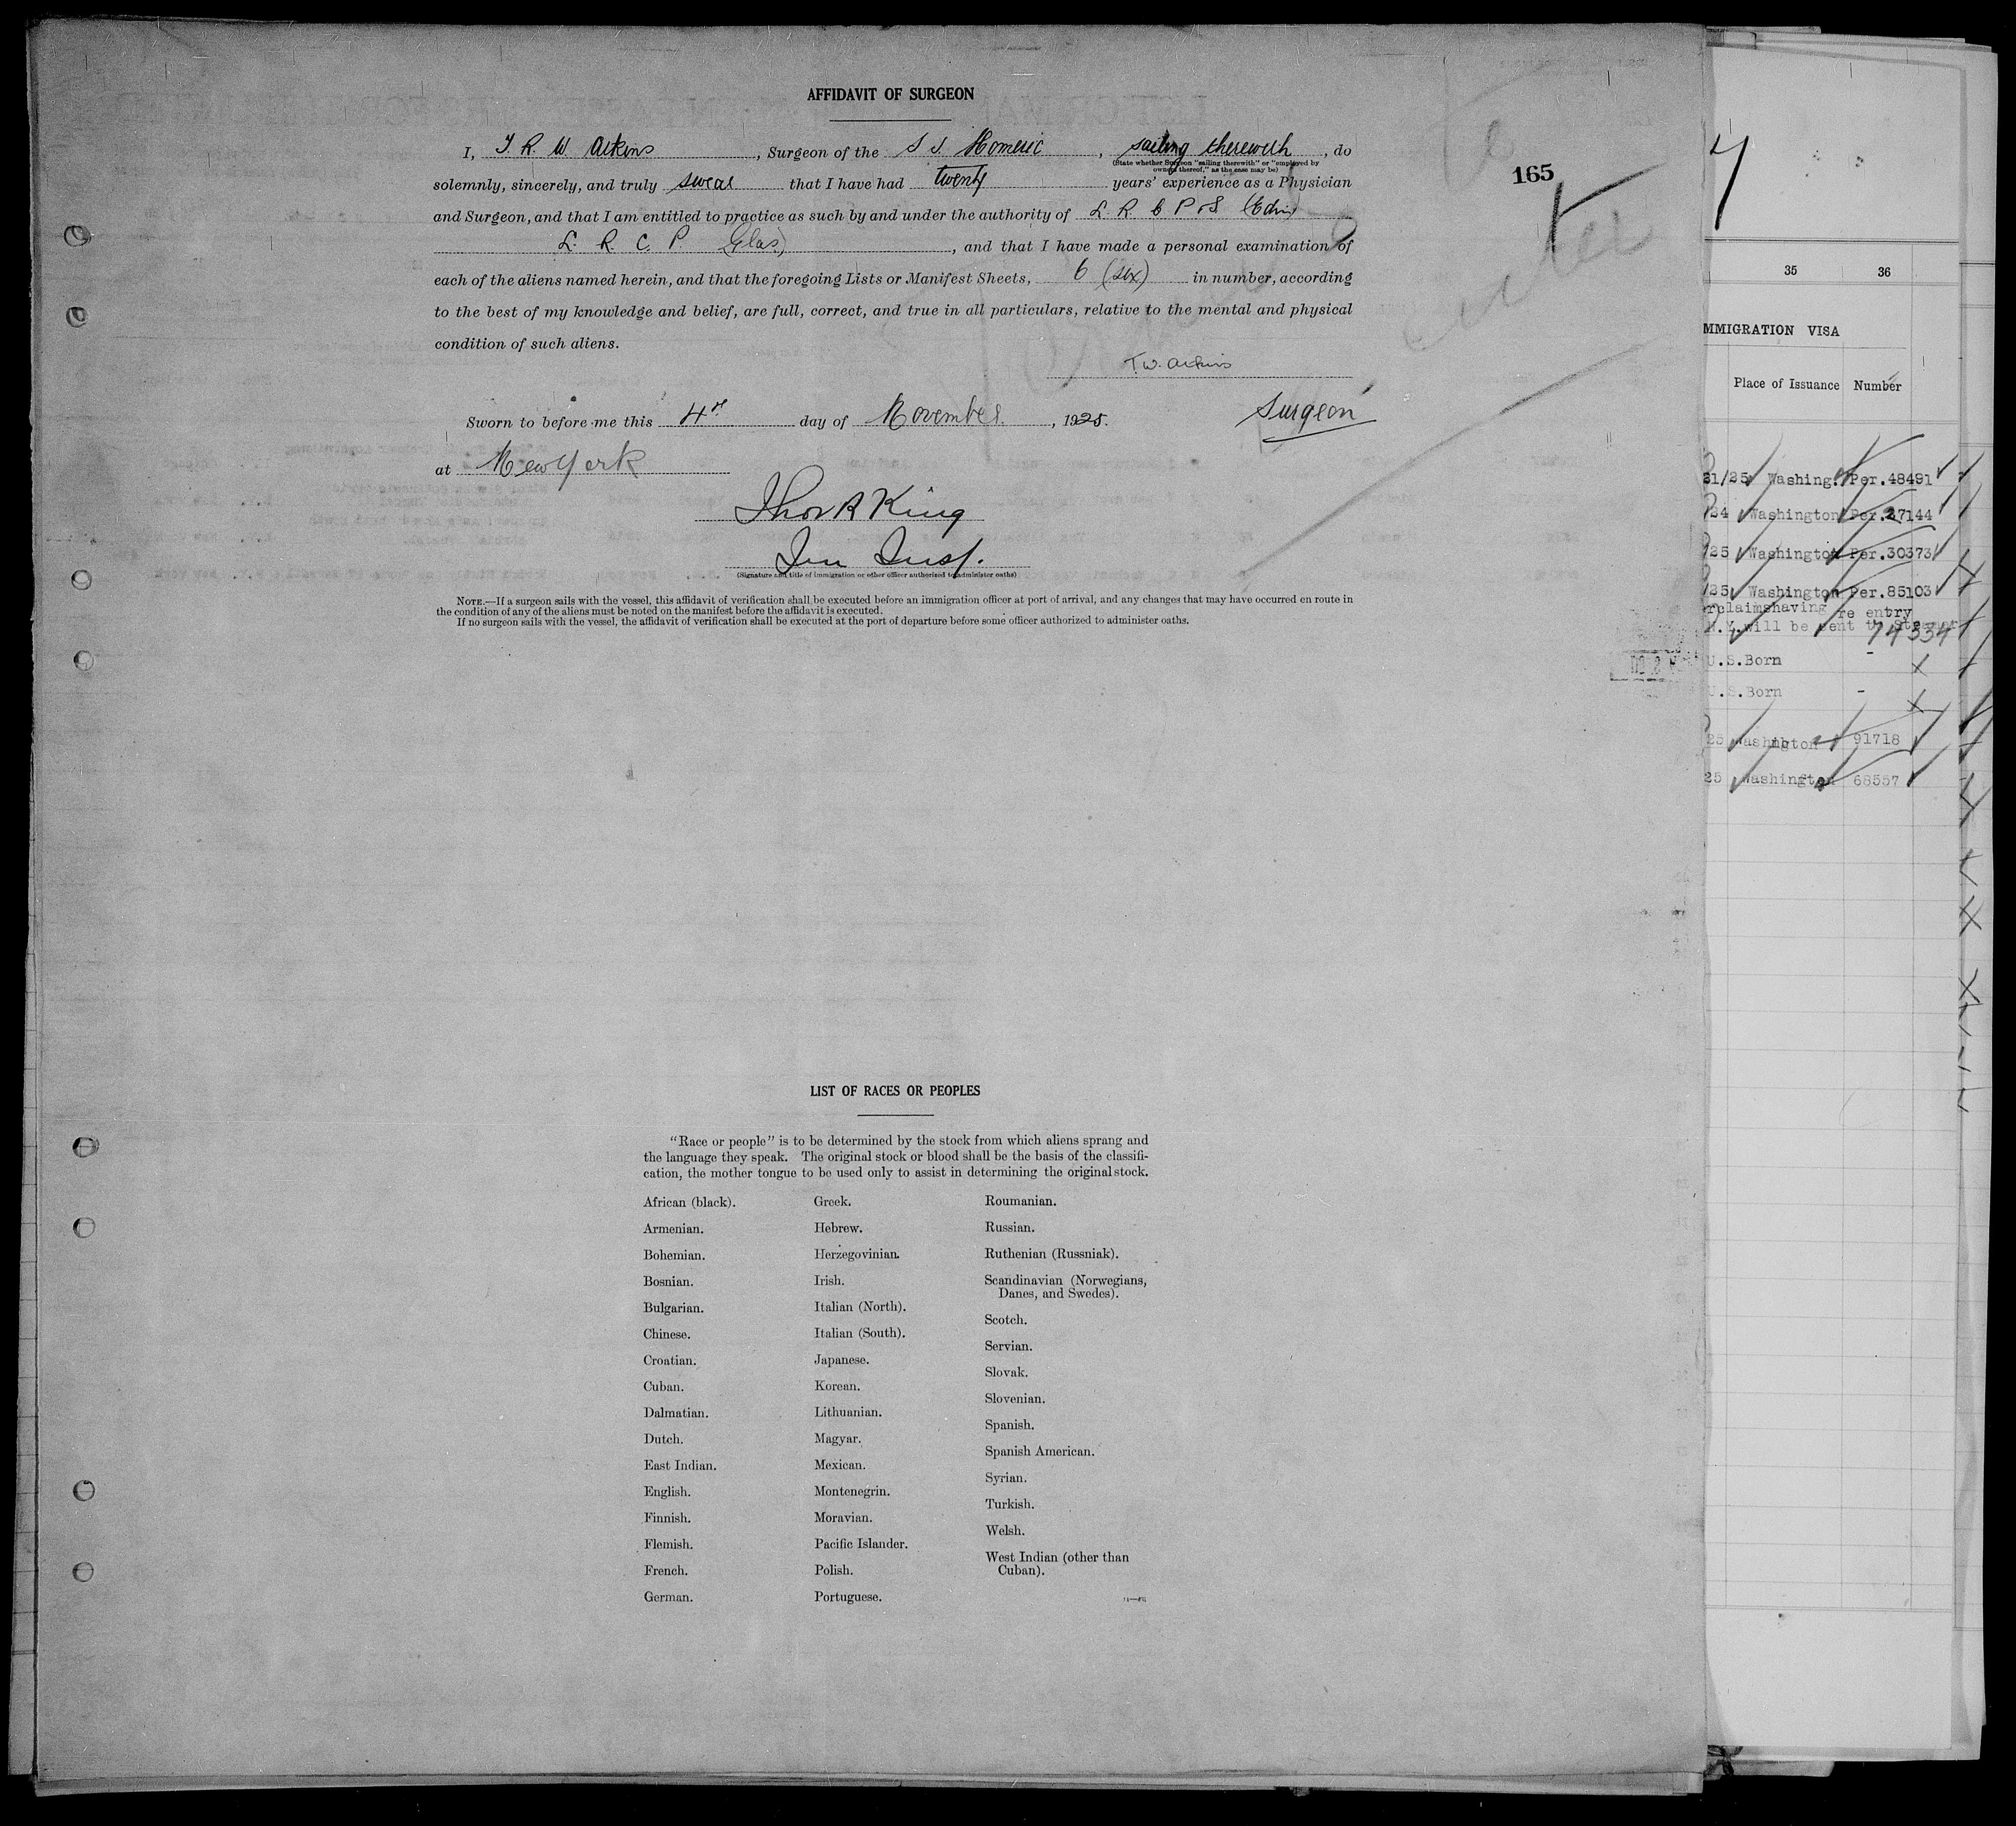 AFFIDAVIT OF SURGEON
I, T. R. W. Atkins, Surgeon of the S S. Homeric, sailing therewith, do
(State whether Surgeon "sailing therewith" or "employed by
owners thereof," as the case may be)
165
solemnly, sincerely, and truly swear that I have had twenty years' experience as a Physician
and Surgeon, and that I am entitled to practice as such by and under the authority of L. R. C P & S (Edin)
L. R. C. P. (Glas), and that I have made a personal examination of
each of the aliens named herein, and that the foregoing Lists or Manifest Sheets, 6 (six) in number, according
to the best of my knowledge and belief, are full, correct, and true in all particulars, relative to the mental and physical
condition of such aliens.
T. W. Atkins
Surgeon
Sworn to before me this 4th day of November, 1925.
at New York
Thos R King
Imm Insp.
(Signature and title of immigration or other officer authorized to administer oaths)
NOTE.—If a surgeon sails with the vessel, this affidavit of verification shall be executed before an immigration officer at port of arrival, and any changes that may have occurred en route in
the condition of any of the aliens must be noted on the manifest before the affidavit is executed.
If no surgeon sails with the vessel, the affidavit of verification shall be executed at the port of departure before some officer authorized to administer oaths.
LIST OF RACES OR PEOPLES
"Race or people" is to be determined by the stock from which aliens sprang and
the language they speak. The original stock or blood shall be the basis of the classifi-
cation, the mother tongue to be used only to assist in determining the original stock.
African (black).
Armenian.
Bohemian.
Bosnian.
Bulgarian.
Chinese.
Croatian.
Cuban.
Dalmatian.
Dutch.
East Indian.
English.
Finnish.
Flemish.
French.
German.
Greek.
Hebrew.
Herzegovinian.
Irish.
Italian (North).
Italian (South).
Japanese.
Korean.
Lithuanian.
Magyar.
Mexican.
Montenegrin.
Moravian.
Pacific Islander.
Polish.
Portuguese.
Roumanian.
Russian.
Ruthenian (Russniak).
Scandinavian (Norwegians,
Danes, and Swedes).
Scotch.
Servian.
Slovak.
Slovenian.
Spanish.
Spanish American.
Syrian.
Turkish.
Welsh.
West Indian (other than
Cuban).
35 36
MMIGRATION VISA
Place of Issuance Number
31/25 Washing. Per.48491
/24 Washington Per.27144
/25 Washington Per.30373
/25 Washington Per.85103
rclaimshaving re entry
N.Y. will be sent to
74334
U.S.Born -
U.S.Born -
25 Washington 91718
25 Washington 68557